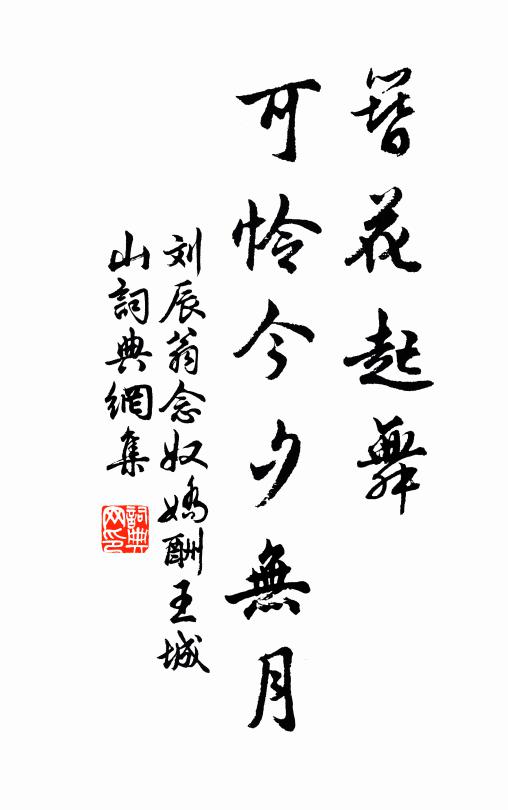 簪花起舞
可怜今夕無月
刘辰翁念奴嬌酬王城
山詞典網集
詞典
网印